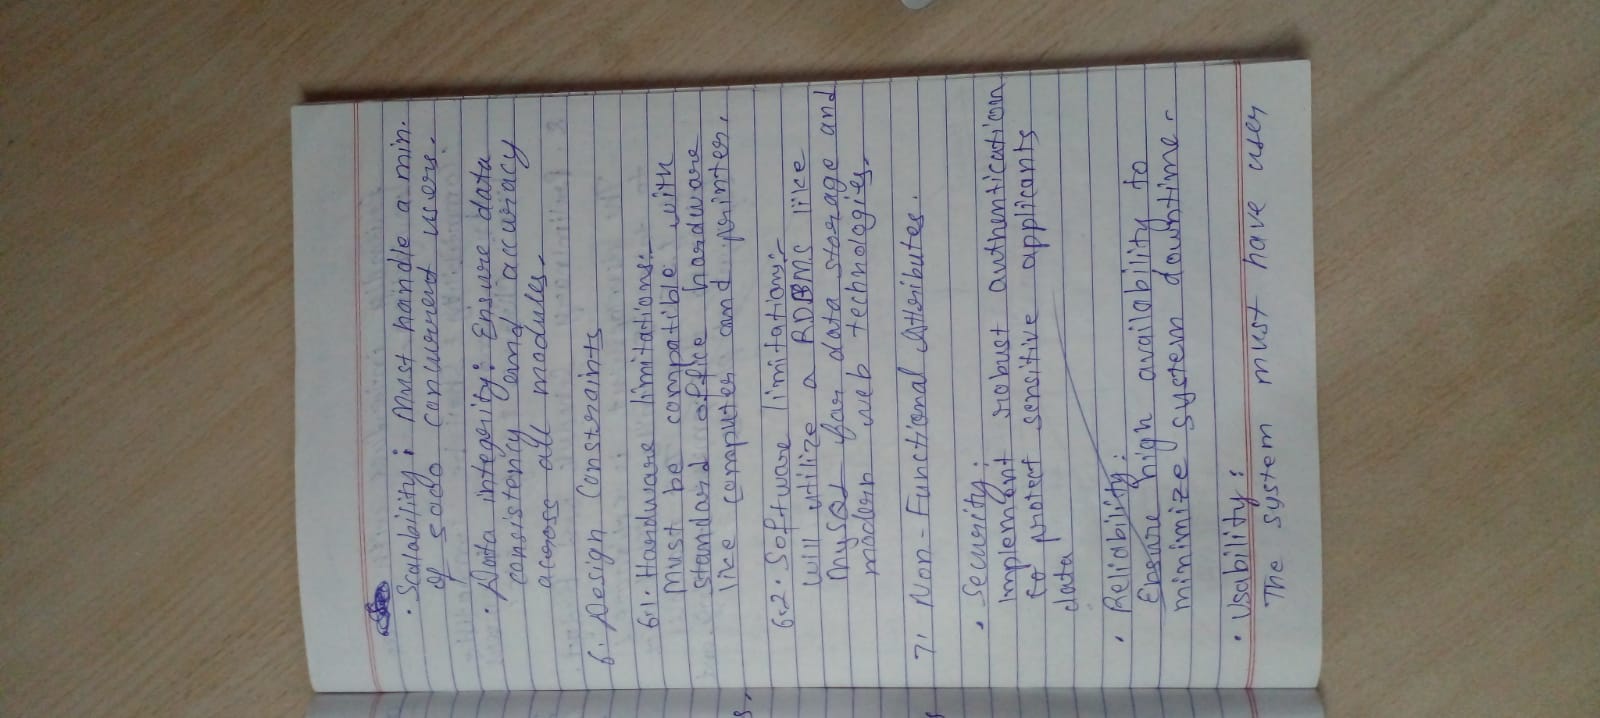 • Scalability: Must handle a min.
of 5000 concurrent users.
• Data integrity: Ensure data
consistency and accuracy
across all modules.
6. Design Constraints
6.1. Hardware limitations:-
Must be compatible with
standard office hardware
like computer and printer.
6.2. Software limitation:-
Will utilize a RDBMS like
MySQL for data storage and
modern web technologies.
7. Non-Functional Attributes.
• Security:
Implement robust authentication
to protect sensitive applicants
data
• Reliability:
Ensure high availability to
minimize system downtime.
• Usability:
The system must have user